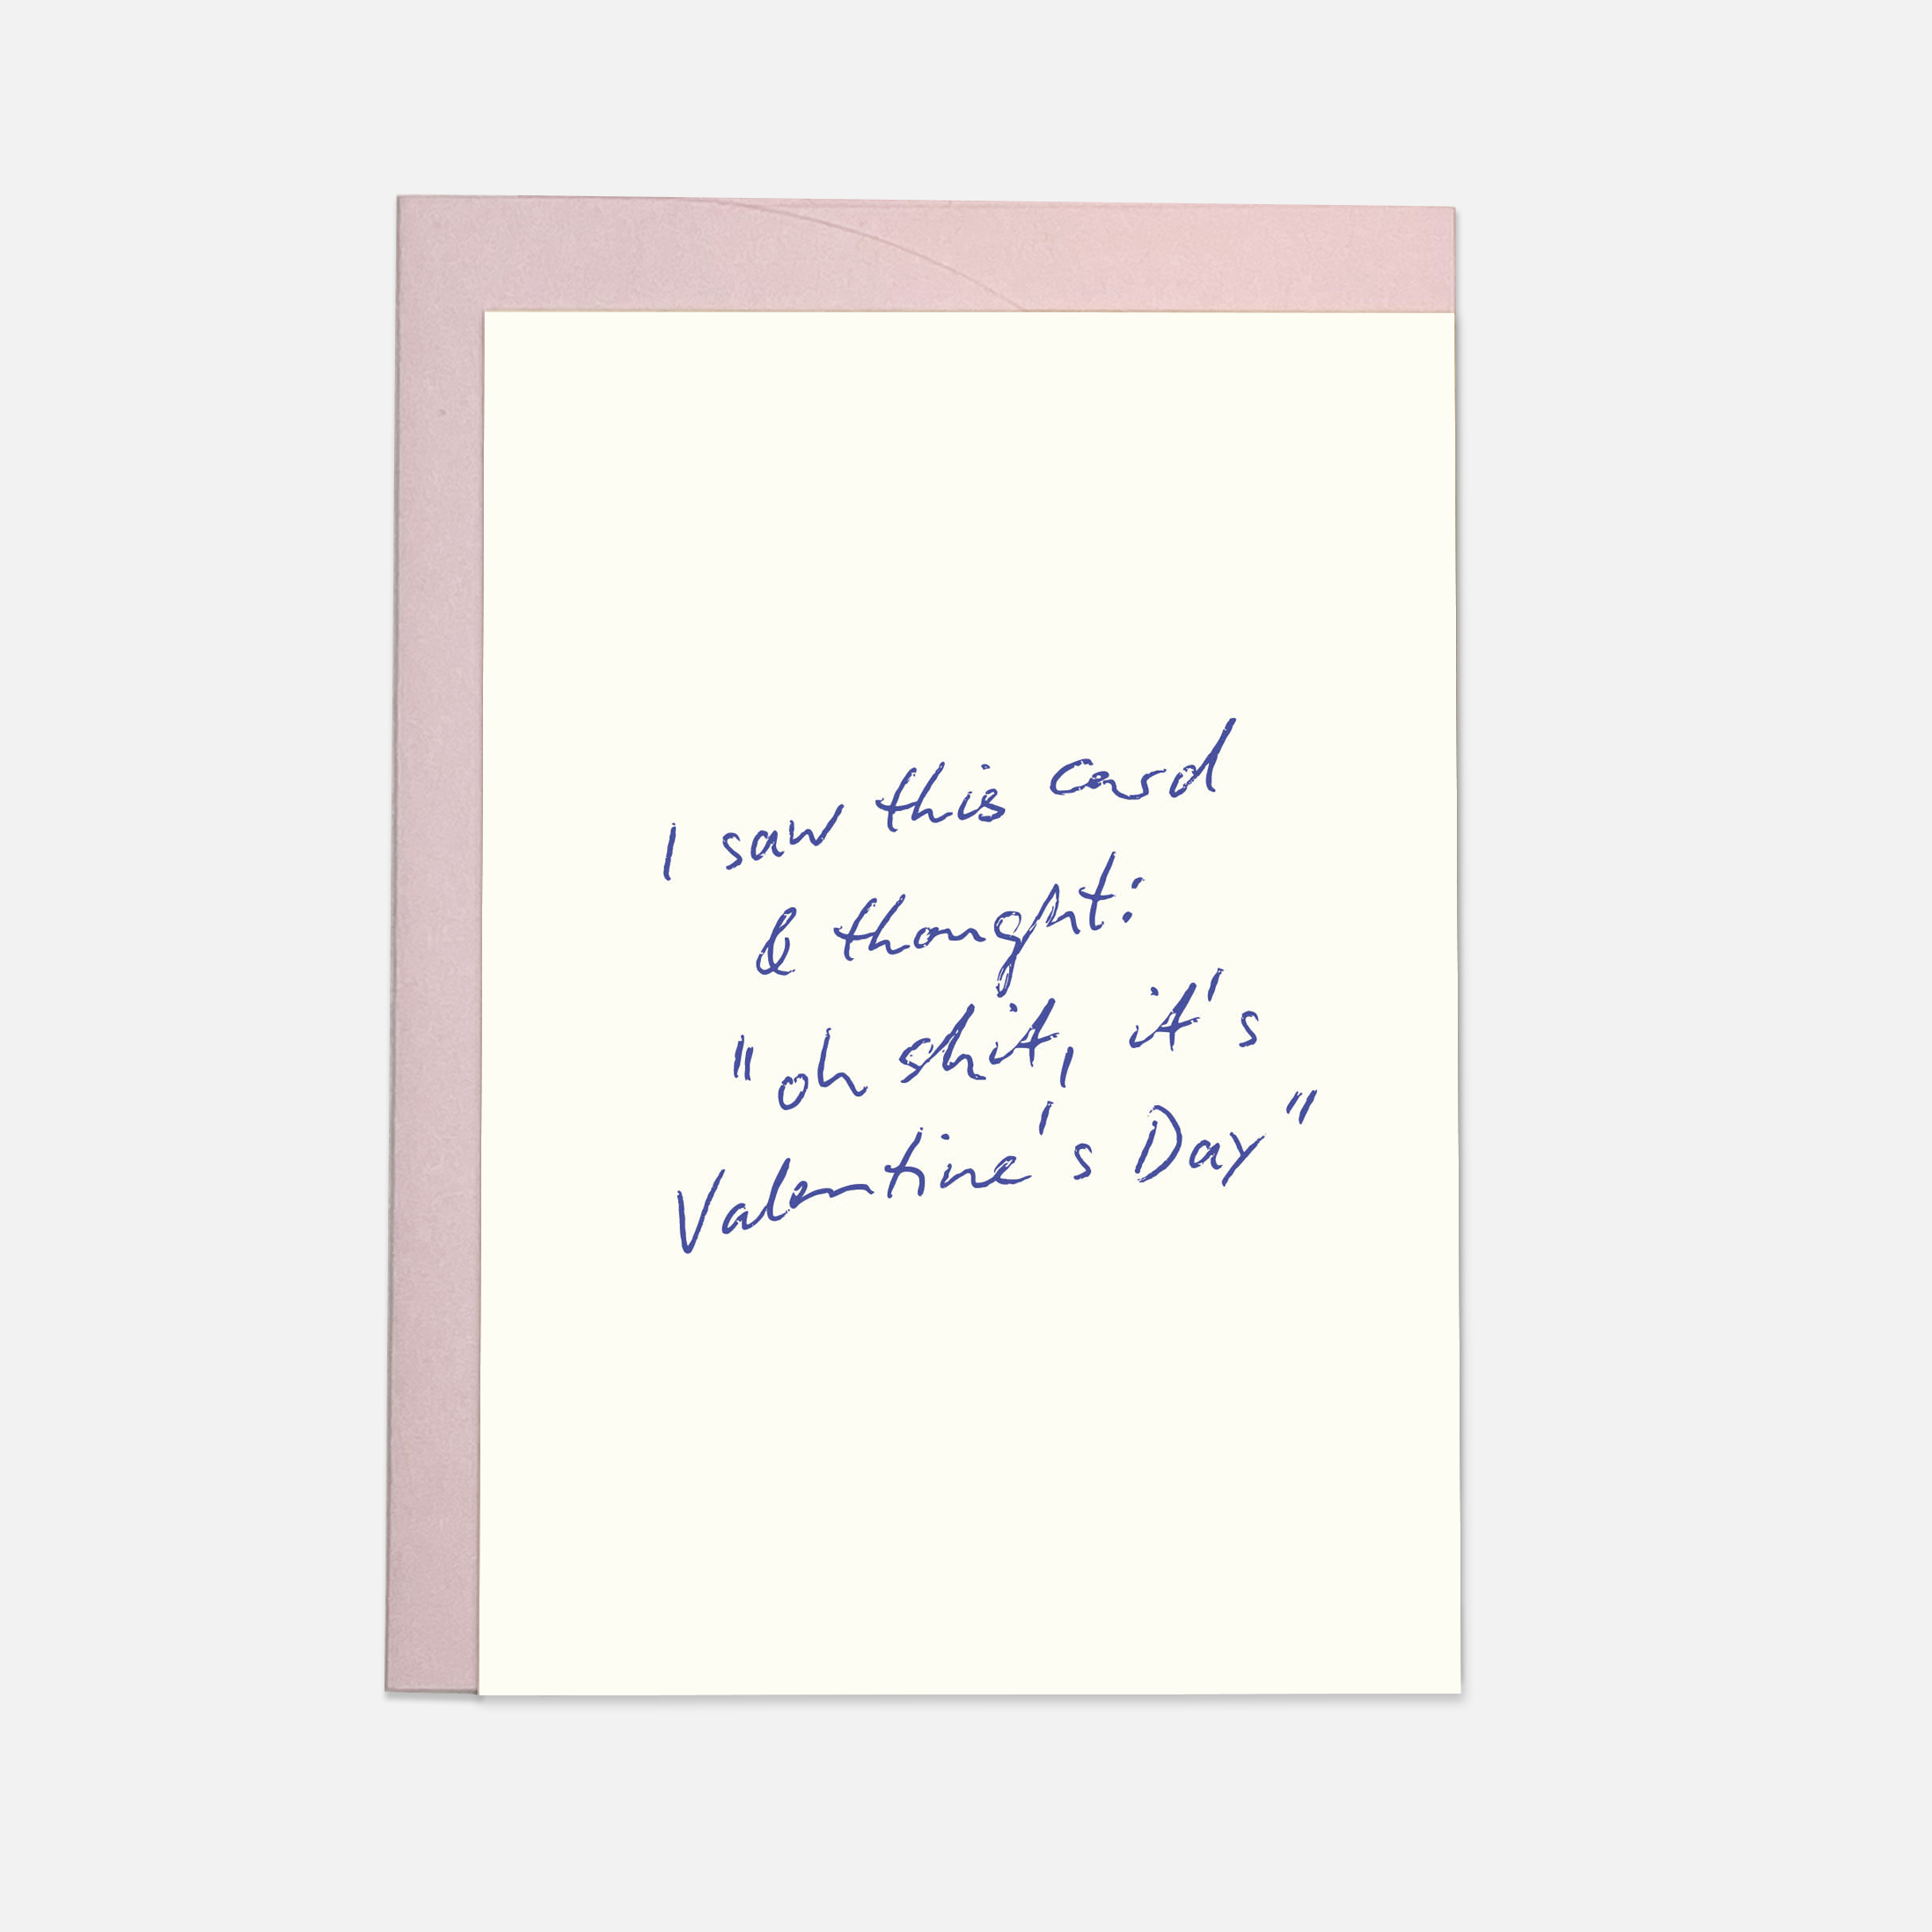 I saw this card
& thought:
"oh shit, it's
Valentine's Day"